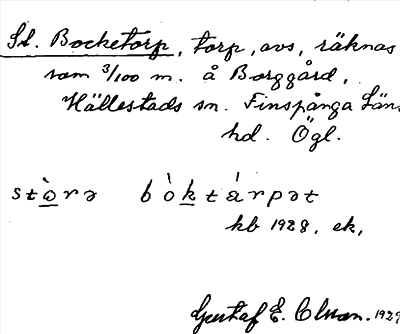 St. Bocketorp, torp, avs, räknas
som 3/100 m. å Borggård,
Hällestads sn. Finspånga Läns
hd. Ögl.
stὼrə bòktárpət
hb 1928. ek,
Gustaf E. Olsson. 1929